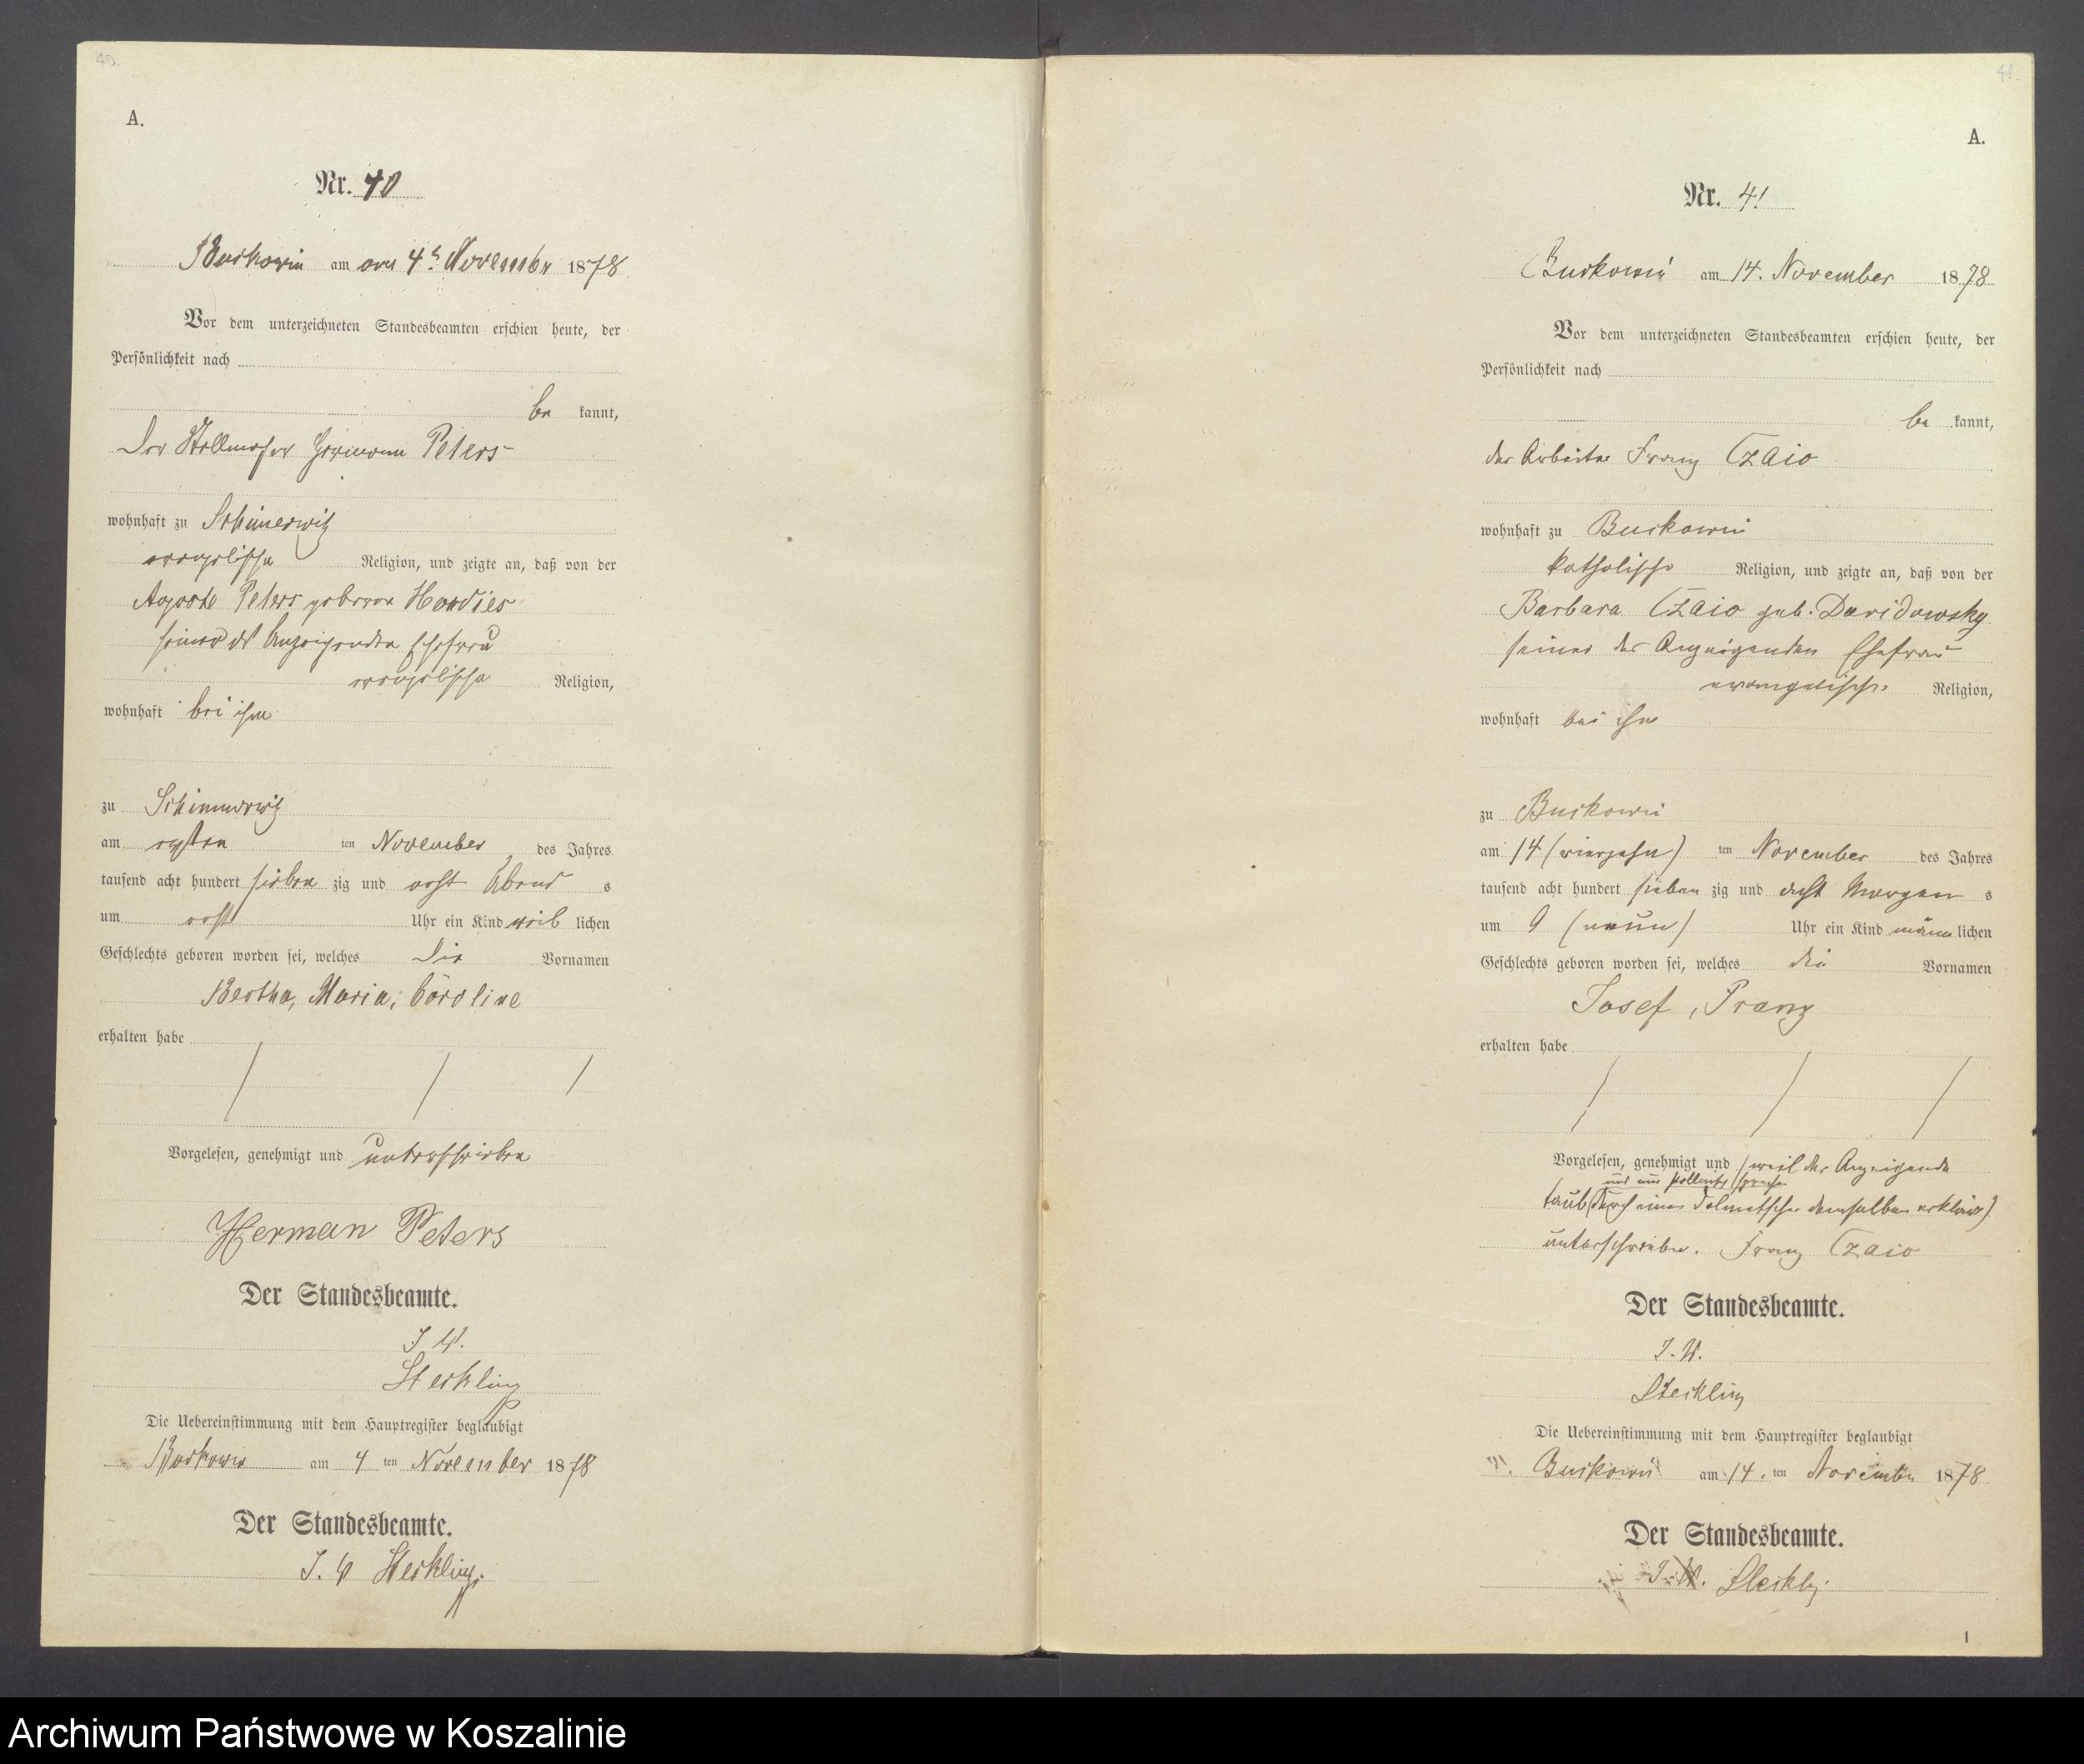 40.
A.
Nr. 40
Buckowin am 4t November 1878
Vor dem unterzeichneten Standesbeamten erschien heute, der
Persönlichkeit nach
be kannt,
Der Stellmacher Hermann Peters
wohnhaft zu Schimerwitz
evangelische Religion, und zeigte an, daß von der
Auguste Peters geborene
seiner des Anzeigenden Ehefrau
evangelische Religion,
wohnhaft bei ihm
zu Schimmerwitz
am ersten ten November des Jahres
tausend acht hundert sieben zig und acht Abend s
um acht Uhr ein Kind weib lichen
Geschlechts geboren worden sei, welches die Vornamen
Bertha, Maria, Caroline
erhalten habe
Vorgelesen, genehmigt und unterschrieben
Herman Peters
Der Standesbeamte.
J. V.
Steckling
Die Uebereinstimmung mit dem Hauptregister beglaubigt
Buckowin am 4 ten November 1878
Der Standesbeamte.
J. V Steckling.
41.
A.
Nr. 41
Buckowin am 14. November 1878
Vor dem unterzeichneten Standesbeamten erschien heute, der
Persönlichkeit nach
be kannt,
der Arbeiter Franz Czaio
wohnhaft zu Buckowin
katholische Religion, und zeigte an, daß von der
Barbara Czaio geb. Davidowsky
seiner des Anzeigenden Ehefrau
evangelische Religion,
wohnhaft bei ihm
zu Buckowin
am 14 (vierzehn) ten November des Jahres
tausend acht hundert sieben zig und acht Morgen s
um 9 (neun) Uhr ein Kind männ lichen
Geschlechts geboren worden sei, welches die Vornamen
Josef, Franz
erhalten habe
Vorgelesen, genehmigt und (weil der Anzeigende
und nur
taub durch einen Dolmetscher demselben erklärt)
unterschrieben. Franz Czaio
Der Standesbeamte.
J. V.
Steckling
Die Uebereinstimmung mit dem Hauptregister beglaubigt
Buckowin am 14. ten November 1878
Der Standesbeamte.
J. V. Steckling
1
Archiwum Państwowe w Koszalinie